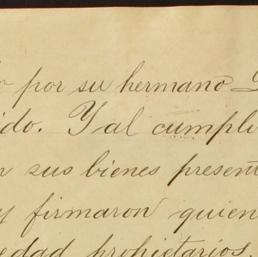 o por su hermano
ido. Y al cumpli
n sus bienes present
y firmaron quien
edad prohietarios.